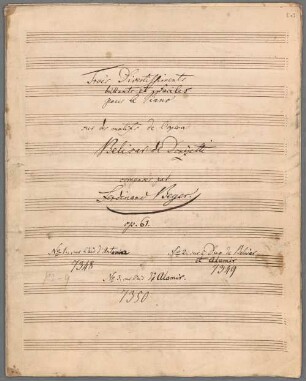 Trois Divertissements
brillants et faciles
pour le Piano
sur des motifs de l'Opera
Belisar de Donizetti
composés par
Ferdinand Beyer
op. 61.
No. 1. sur l'Air d'Antonina
7348
No. 2. sur le Duo de Belisar
et Alamir
7349
No. 3. sur l'Air d'Alamir.
7350